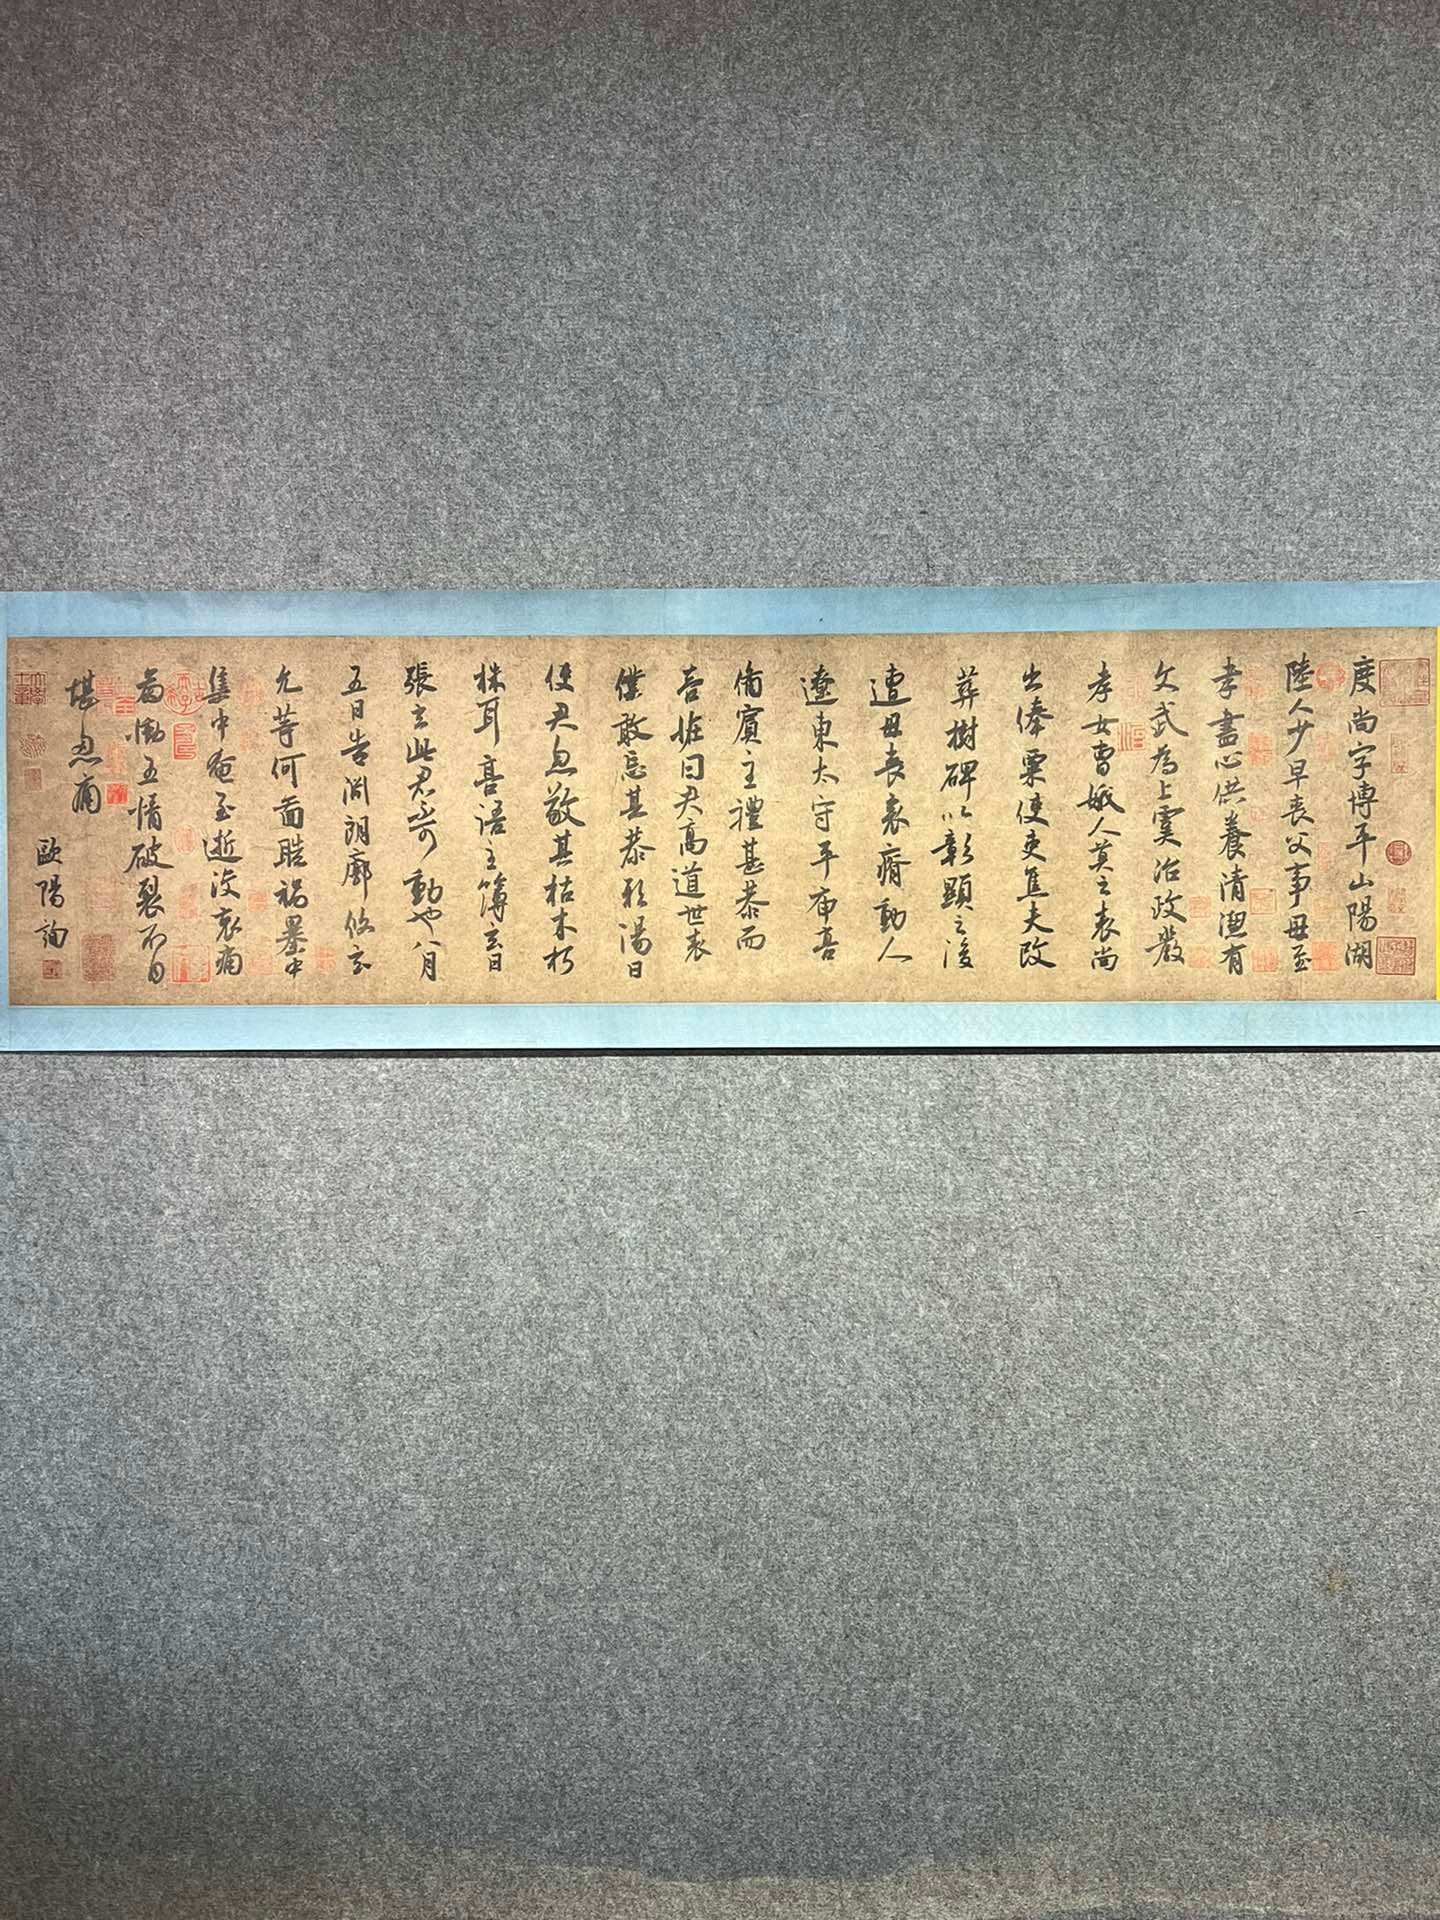 度尚字博平山陽湖
陸人少早喪父事母至
孝盡心供養清洒有
文武為上虞治政嚴
孝女曹娥人莫之表尚
出俸粟使吏焦夫改
葬樹碑以彰顯之後
遭母喪哀瘠動人
遼東太守平府君
備賓主禮甚恭而
吾雖曰尹高道世表
僕敢忘其恭耶湯曰
使尹忽敬其枯木朽
株耳高語主簿云日
張玄此君之奇動也八月
五日告渊朗廓攸玄
允等何啚酷禍暴集
集中奄至逝没哀痛
啚慟五情破裂不自
堪忍痛
歐陽詢